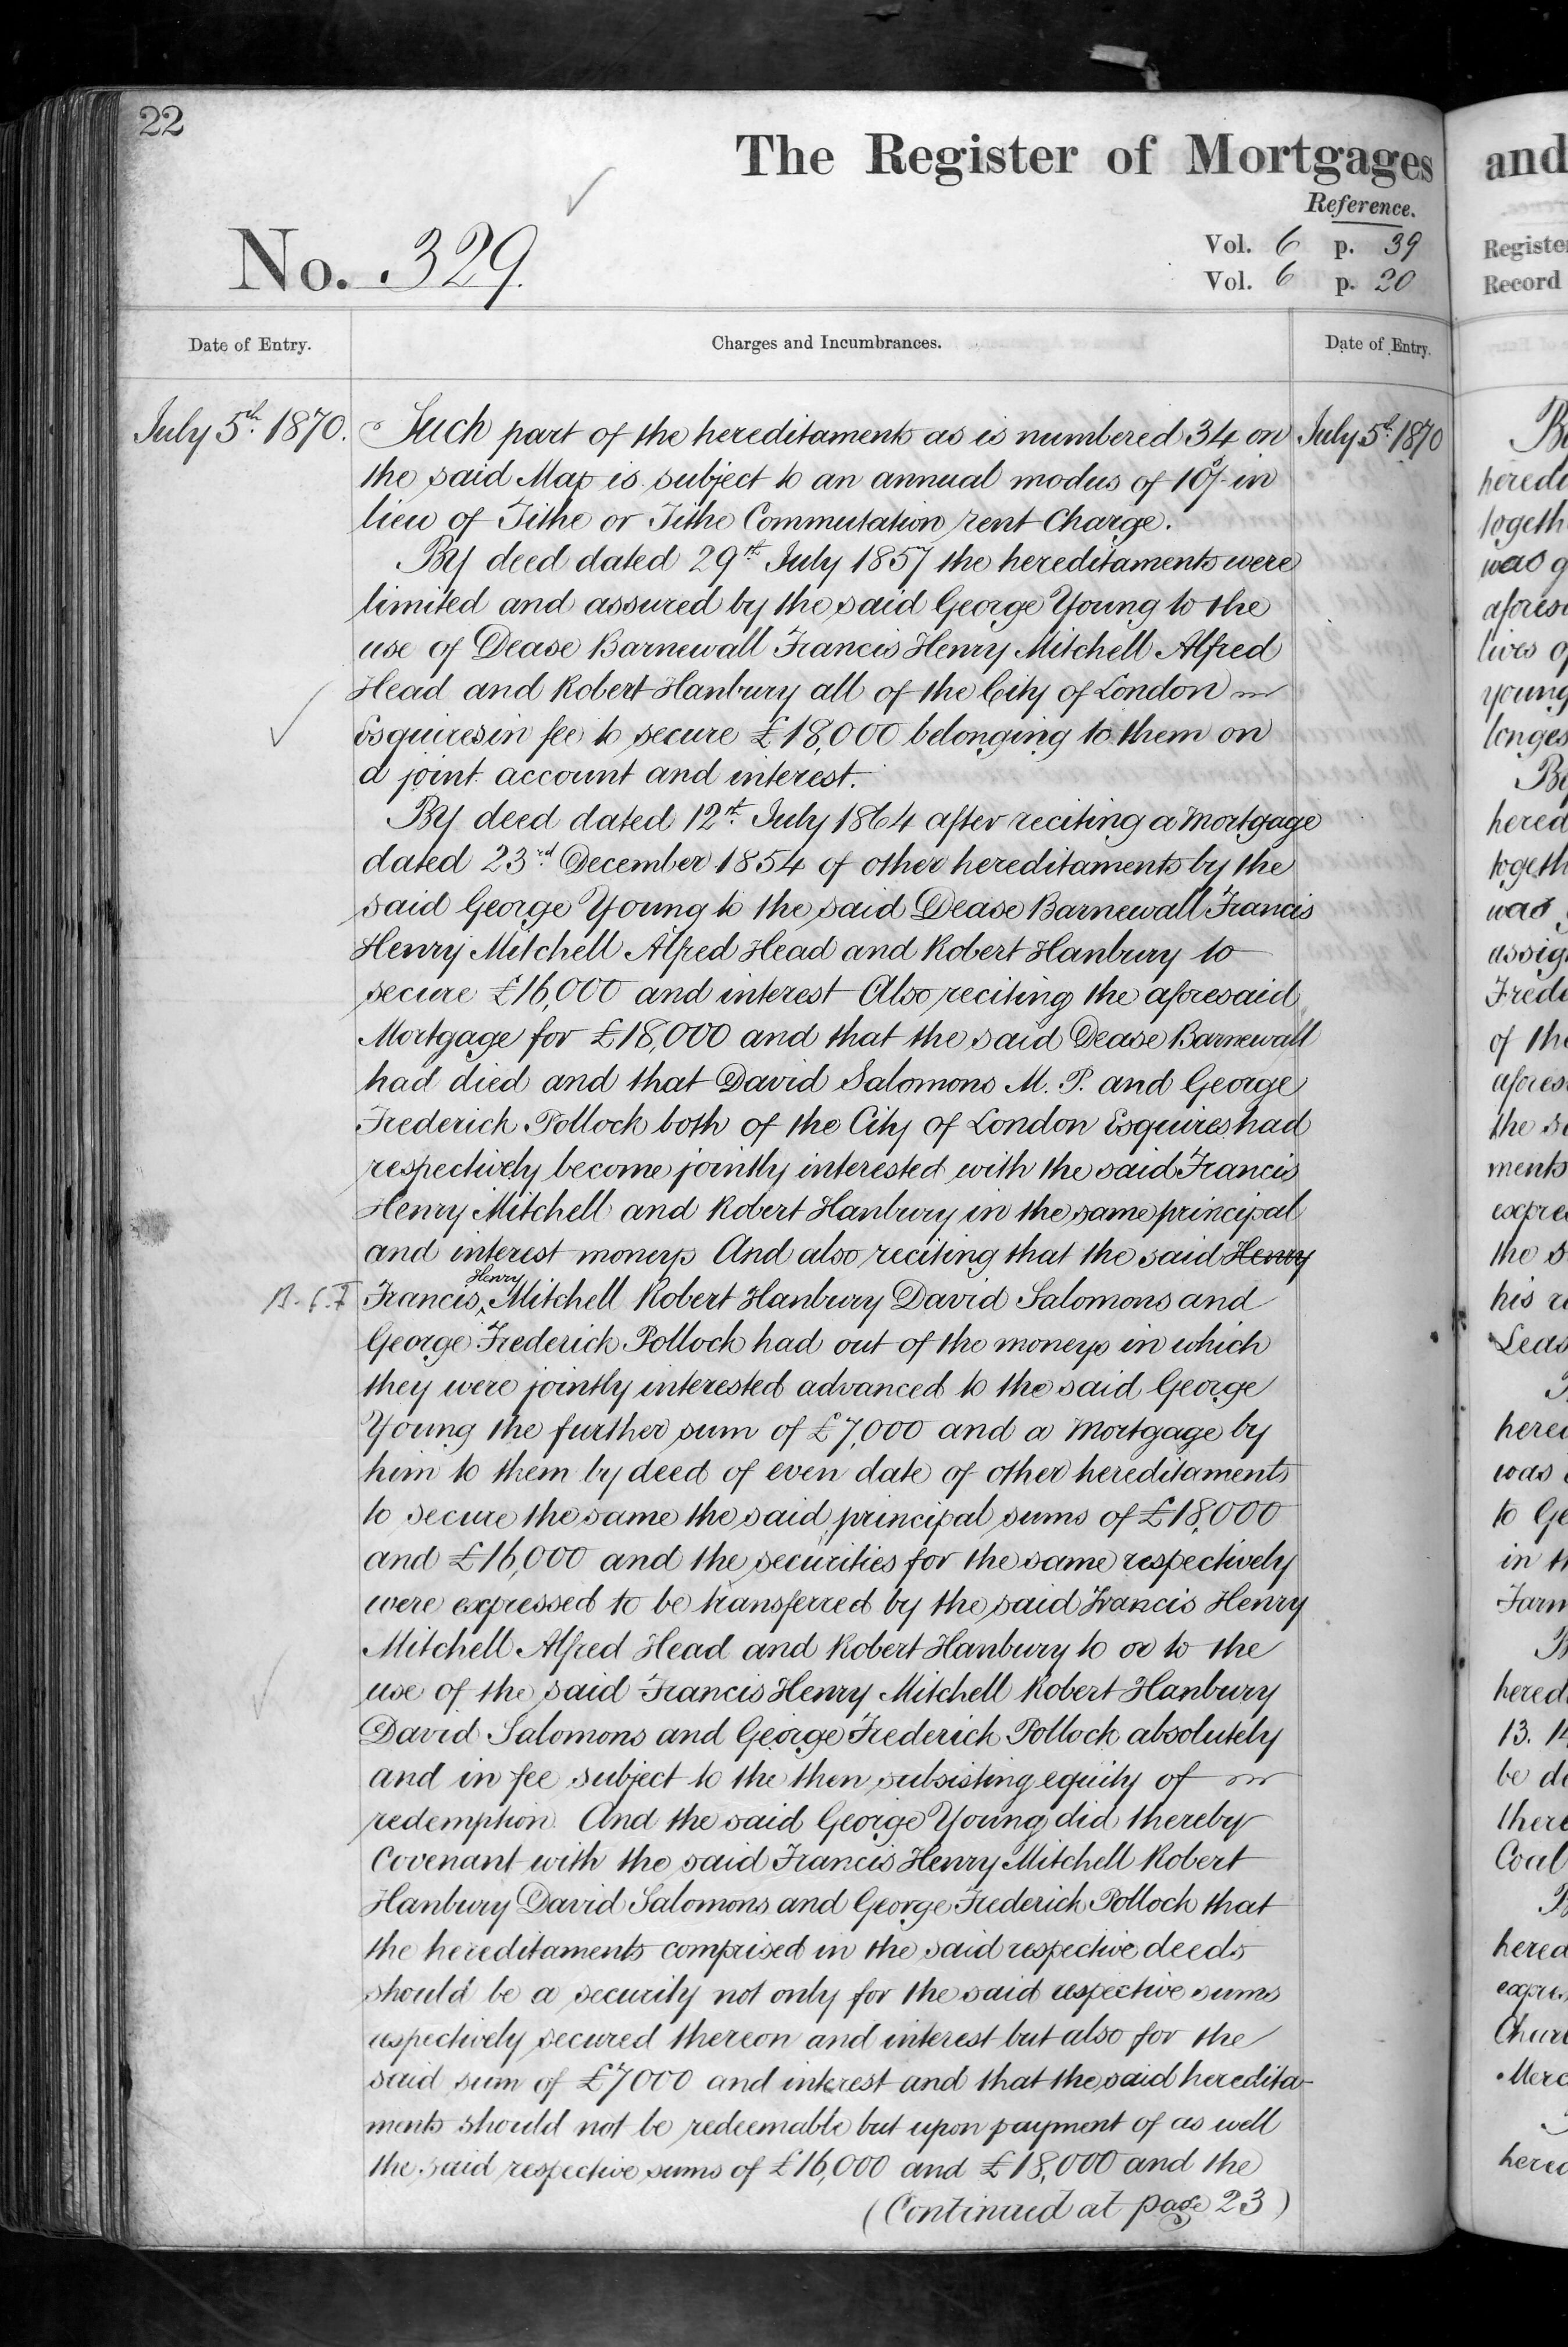 22
The Register of Mortgages
Reference.
No. 329.
Vol. 6 p. 39
Vol. 6 p. 20
Date of Entry.
Charges and Incumbrances.
Date of Entry.
July 5th. 1870.
Such part of the hereditaments as is numbered 34 on
the said Map is subject to an annual modus of 10s/- in
lieu of Tithe or Tithe Commutation rent Charge.
By deed dated 29th July 1857 the hereditaments were
limited and assured by the said George Young to the
use of Dease Barnewall Francis Henry Mitchell Alfred
Head and Robert Hanbury all of the City of London
Esquires in fee to secure £18,000 belonging to them on
a joint account and interest.
By deed dated 12th. July 1864 after reciting a Mortgage
dated 23rd December 1854 of other hereditaments by the
said George Young to the said Dease Barnewall Francis
Henry Mitchell Alfred Head and Robert Hanbury to
secure £16,000 and interest Also reciting the aforesaid
Mortgage for £18,000 and that the said Dease Barnewall
had died and that David Salomons M. P. and George
Frederick Pollock both of the City of London Esquires had
respectively become jointly interested with the said Francis
Henry Mitchell and Robert Hanbury in the same principal
and interest moneys And also reciting that the said Henry
Francis Henry Mitchell Robert Hanbury David Salomons and
George Frederick Pollock had out of the moneys in which
they were jointly interested advanced to the said George
Young the further sum of £7,000 and a Mortgage by
him to them by deed of even date of other hereditaments
to secure the same the said principal sums of £18,000
and £16,000 and the securities for the same respectively
were expressed to be transferred by the said Francis Henry
Mitchell Alfred Head and Robert Hanbury to or to the
use of the said Francis Henry Mitchell Robert Hanbury
David Salomons and George Frederick Pollock absolutely
and in fee subject to the then subsisting equity of
redemption And the said George Young did thereby
Covenant with the said Francis Henry Mitchell Robert
Hanbury David Salomons and George Frederick Pollock that
the hereditaments comprised in the said respective deeds
should be a security not only for the said respective sums
respectively secured thereon and interest but also for the
said sum of £7000 and interest and that the said heredita-
ments should not be redeemable but upon payment of as well
the said respective sums of £16,000 and £18,000 and the
(Continued at page 23)
July 5th. 1870
and
Record